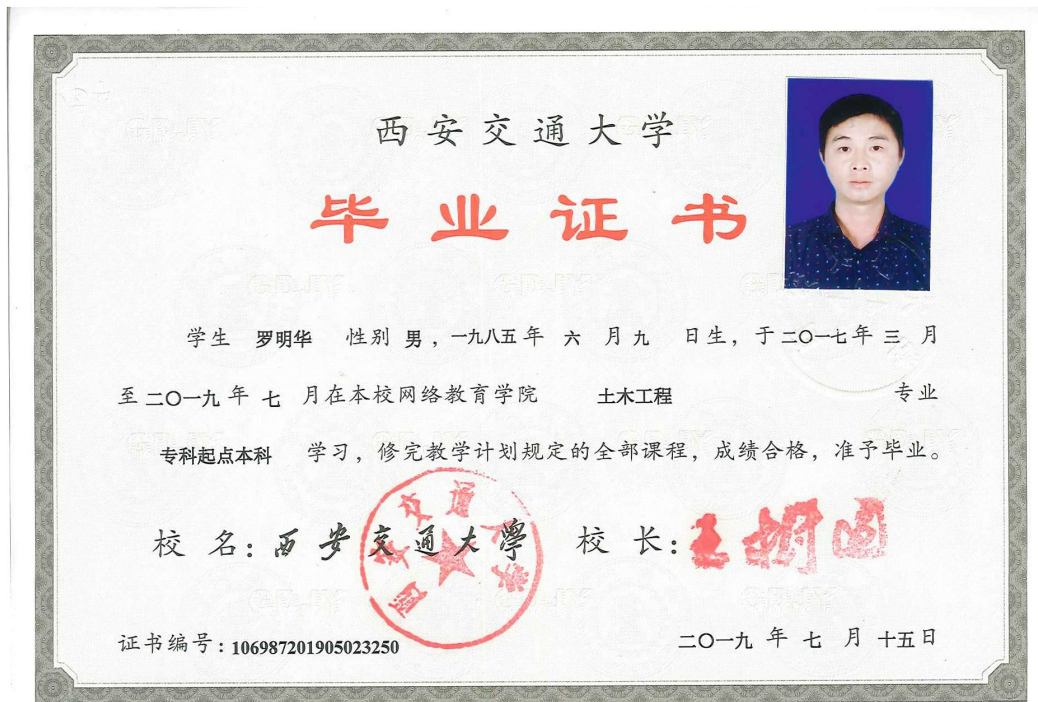 西安交通大学
毕业证书
学生 罗明华 性别 男，一九八五年 六 月 九 日生，于二〇一七年 三 月
至二〇一九 年 七 月在本校网络教育学院 土木工程 专业
专科起点本科 学习，修完教学计划规定的全部课程，成绩合格，准予毕业。
校 名：西安交通大學 校 长：王树国
西安交通大学
证书编号：106987201905023250 二〇一九 年 七 月 十五日